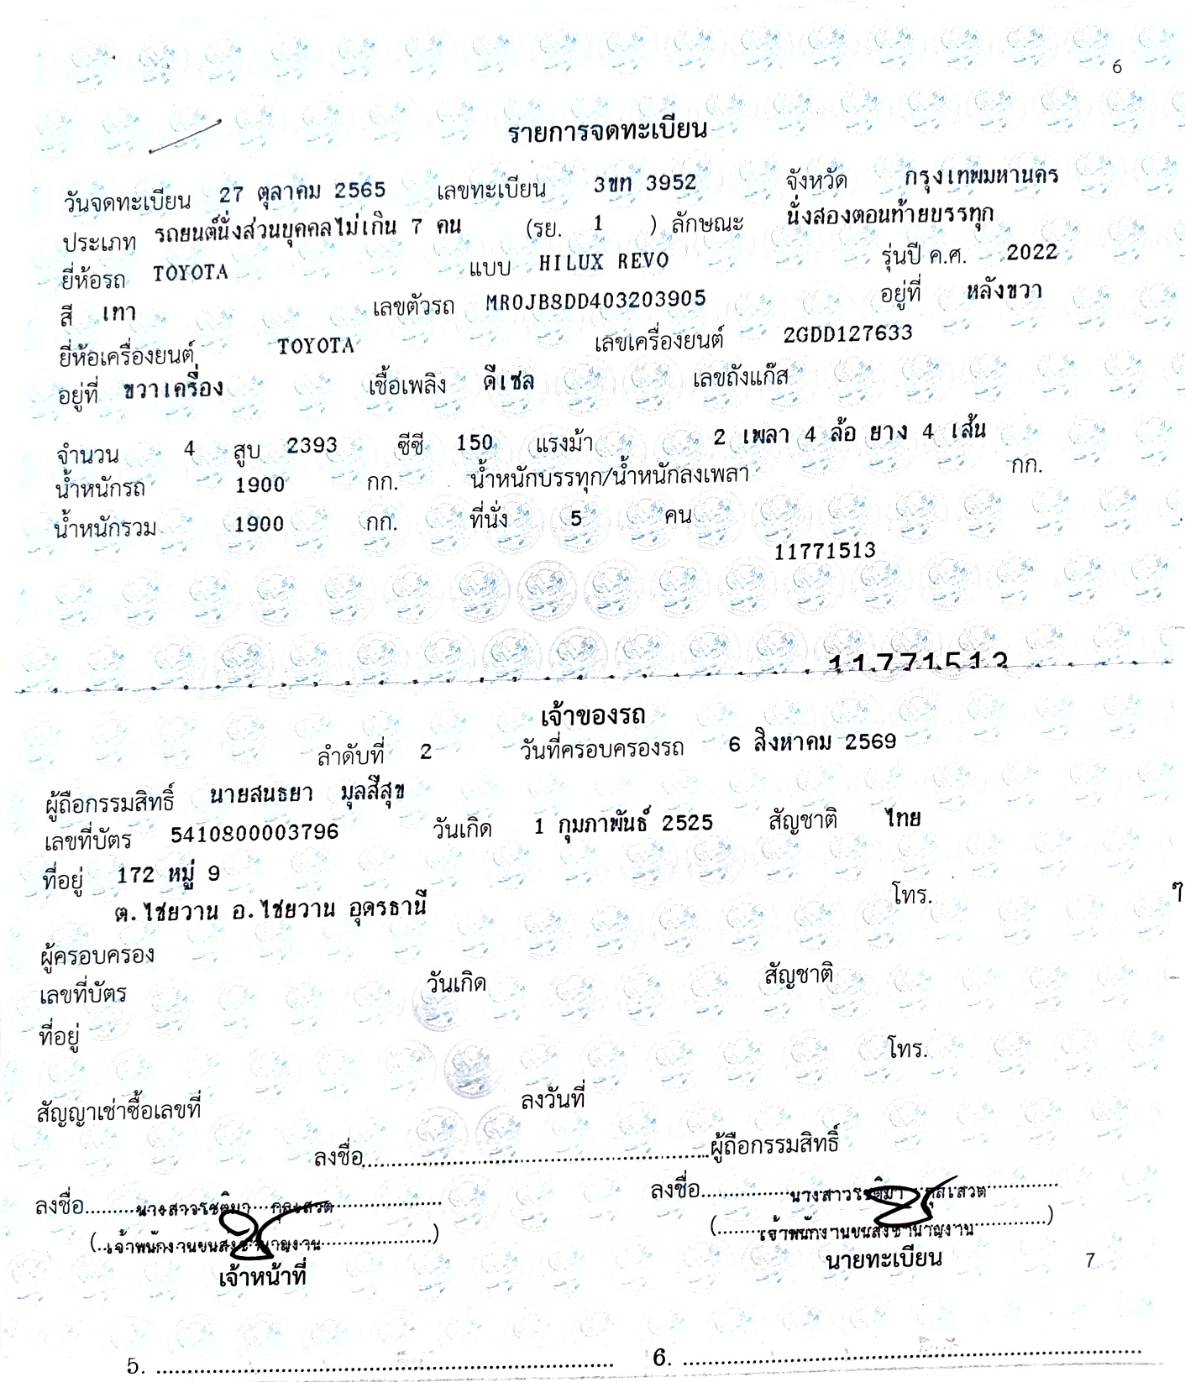 6
รายการจดทะเบียน
วันจดทะเบียน 27 ตุลาคม 2565 เลขทะเบียน 3ขก 3952 จังหวัด กรุงเทพมหานคร
ประเภท รถยนต์นั่งส่วนบุคคลไม่เกิน 7 คน (รย. 1 ) ลักษณะ นั่งสองตอนท้ายบรรทุก
ยี่ห้อรถ TOYOTA แบบ HILUX REVO รุ่นปี ค.ศ. 2022
สี เทา เลขตัวรถ MR0JB8DD403203905 อยู่ที่ หลังขวา
ยี่ห้อเครื่องยนต์ TOYOTA เลขเครื่องยนต์ 2GDD127633
อยู่ที่ ขวาเครื่อง เชื้อเพลิง ดีเซล เลขถังแก๊ส
จำนวน 4 สูบ 2393 ซีซี 150 แรงม้า 2 เพลา 4 ล้อ ยาง 4 เส้น
น้ำหนักรถ 1900 กก. น้ำหนักบรรทุก/น้ำหนักลงเพลา กก.
น้ำหนักรวม 1900 กก. ที่นั่ง 5 คน
11771513
11771513
เจ้าของรถ
ลำดับที่ 2 วันที่ครอบครองรถ 6 สิงหาคม 2569
ผู้ถือกรรมสิทธิ์ นายสนธยา มุลสีสุข
เลขที่บัตร 5410800003796 วันเกิด 1 กุมภาพันธ์ 2525 สัญชาติ ไทย
ที่อยู่ 172 หมู่ 9
ต.ไชยวาน อ.ไชยวาน อุดรธานี โทร.
ผู้ครอบครอง
เลขที่บัตร วันเกิด สัญชาติ
ที่อยู่
โทร.
สัญญาเช่าซื้อเลขที่ ลงวันที่
ลงชื่อ ผู้ถือกรรมสิทธิ์
ลงชื่อ นางสาวโชติมา กุลเสวต ลงชื่อ นางสาวโชติมา กุลเสวต
(เจ้าพนักงานขนส่งชำนาญงาน) (เจ้าพนักงานขนส่งชำนาญงาน)
เจ้าหน้าที่ นายทะเบียน
7
5. 6.